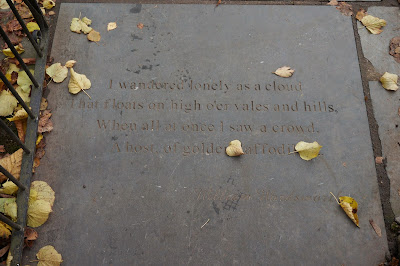 I wandered lonely as a cloud
That floats on high o'er vales and hills,
When all at once I saw a crowd,
A host, of golden daffodils